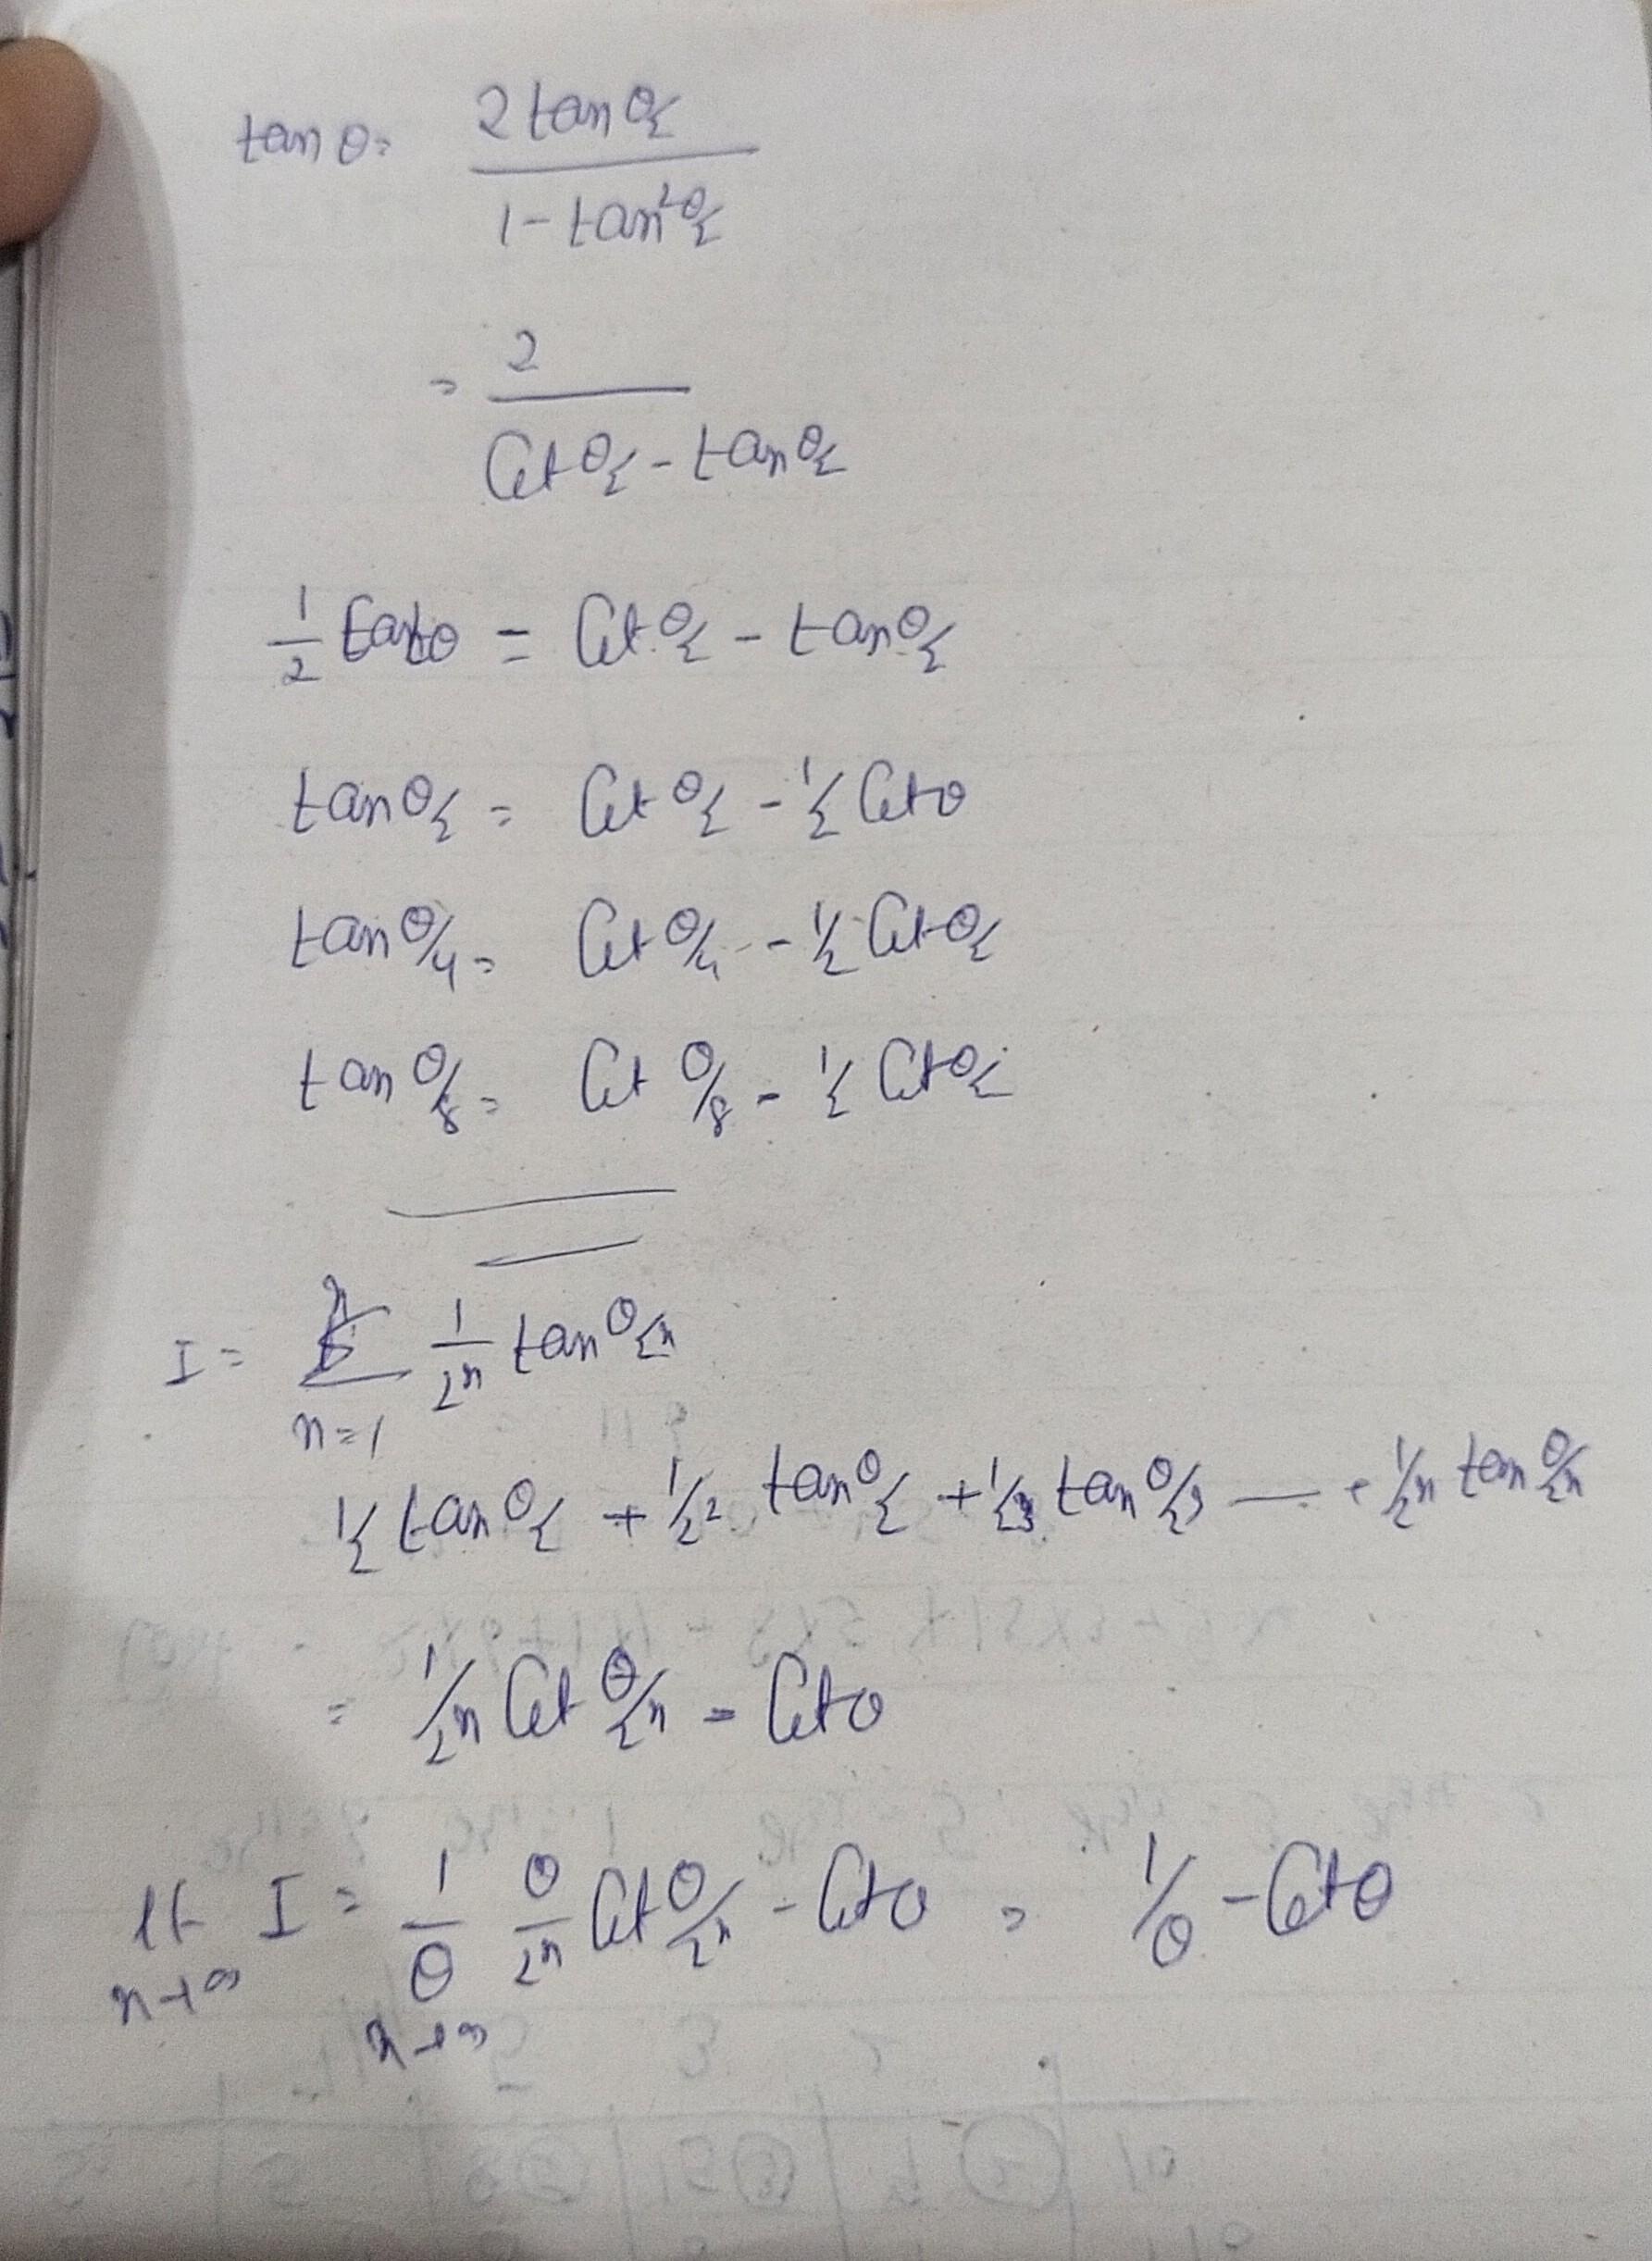 tan θ = 2 tan θ/2 / 1 - tan² θ/2
= 2 / Cot θ/2 - tan θ/2
1/2 tan θ = Cot θ/2 - tan θ/2
tan θ/2 = Cot θ/2 - 1/2 Cot θ
tan θ/4 = Cot θ/4 - 1/2 Cot θ/2
tan θ/8 = Cot θ/8 - 1/2 Cot θ/2
I = Σ n n=1 1/2ⁿ tan θ/2ⁿ
1/2 tan θ/2 + 1/2² tan θ/2 + 1/2³ tan θ/2³ — + 1/2ⁿ tan θ/2ⁿ
= 1/2ⁿ Cot θ/2ⁿ - Cot θ
lt n→∞ I = 1/θ n→∞ θ/2ⁿ Cot θ/2ⁿ - Cot θ = 1/θ - Cot θ